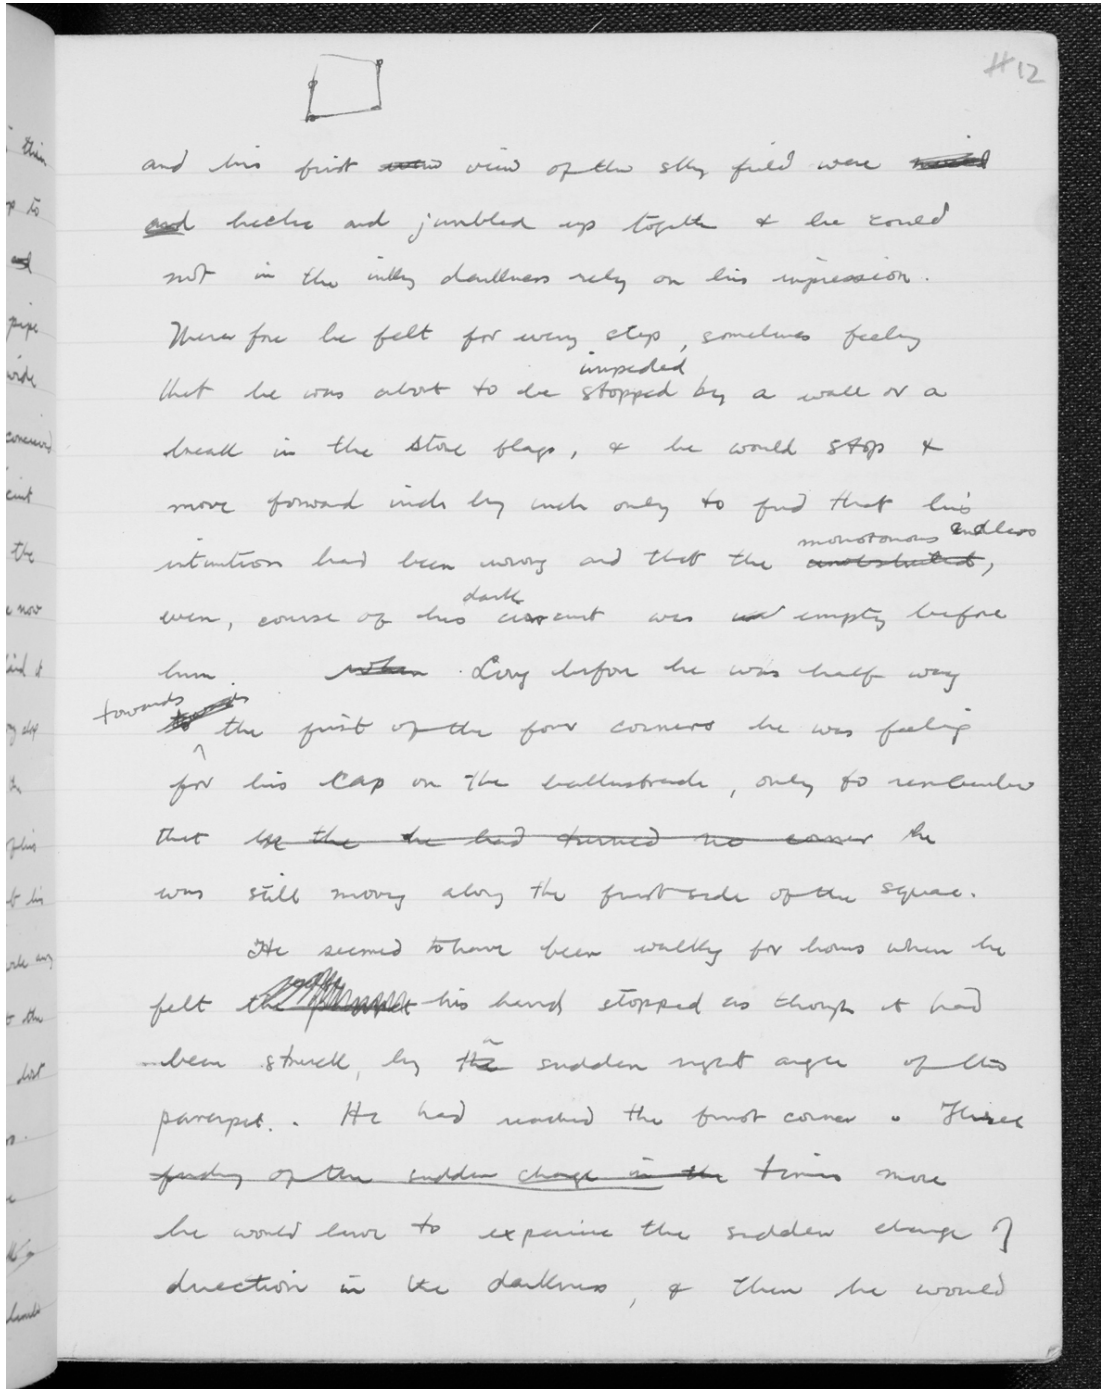 #12
and his first view view of the sky field were mixed
and hectic and jumbled up together & he could
not in the inky darkness rely on his impression.
Therefore he felt for every step, sometimes feeling
impeded
that he was about to be stopped by a wall or a
break in the stone flags, & he would stop &
move forward inch by inch only to find that his
monotonous endless
intuition had been wrong and that the unobstructed,
even, course of his circuit was empty before
dark
him. when . Long before he was half way
towards
to the first of the four corners he was feeling
for his cap on the ballustrade, only to remember
that the he had turned no corner he
was still moving along the first side of the square.
He seemed to have been walking for hours when he
felt the his hand stopped as though it had
been struck, by the sudden right angle of the
parapet. . He had reached the first corner . Three
finding of the sudden change in the times more
he would have to experience the sudden change of
direction in the darkness, & then he would